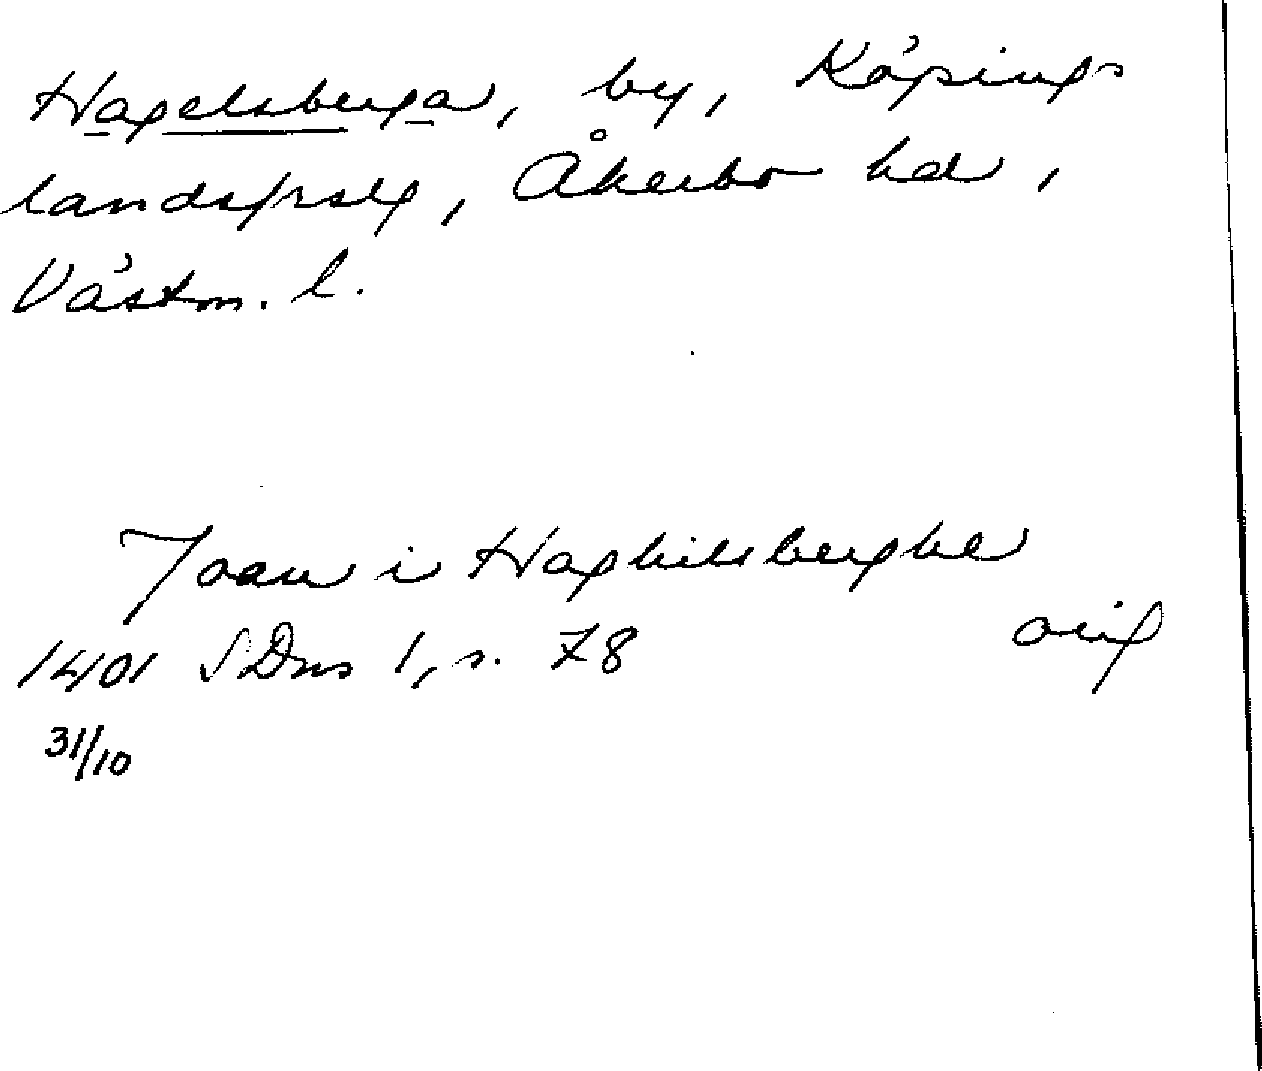 Hagelsberga, by, Köpings
landsfrslg, Åkerbo hd,
Västm. l.
Joan i Haghilsberghe
orig
1401 SDns 1, s. 78
31/10